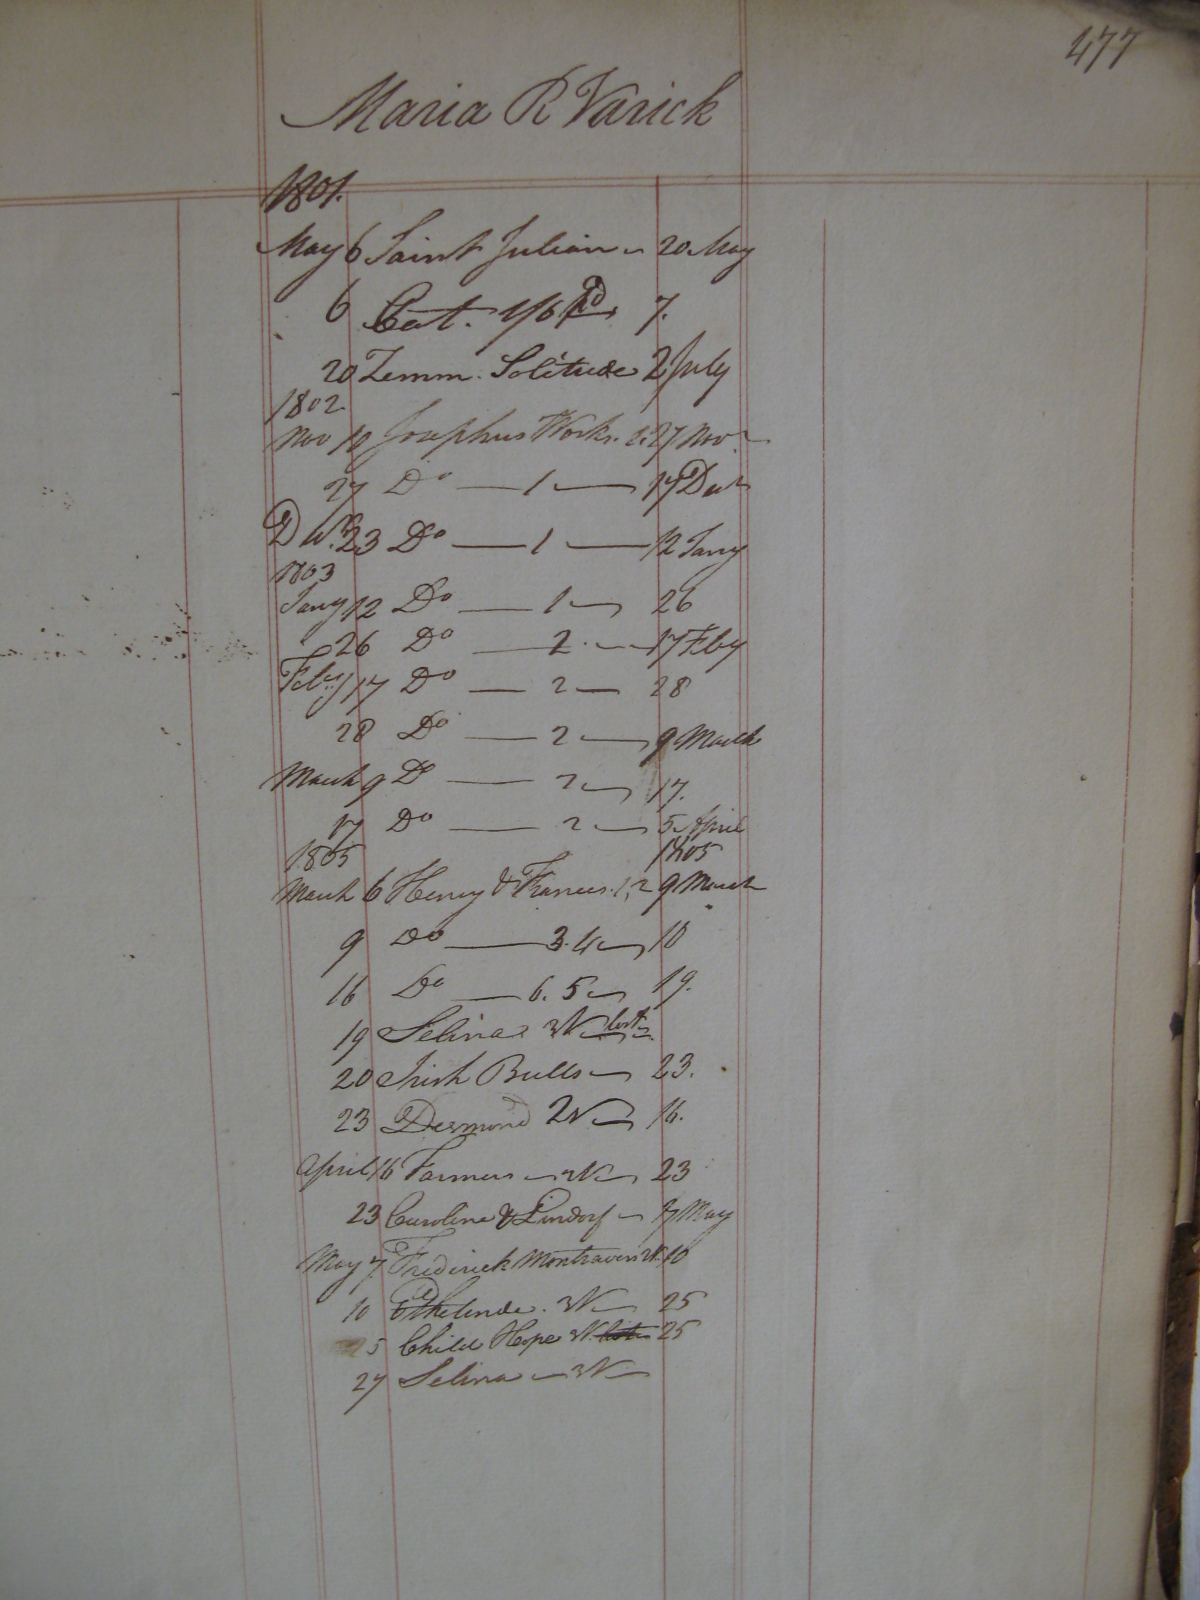 477
Maria R Varick
1801.
May 6 Saint Julian 20 May
6 Cat. 1/6 pd 7.
20 Zimm. Solitude 2 July
1802
Nov 10 Josephus Works. 27 Nov
27 Do — 1 — 17 Decr
Decr. 23 Do — 1 — 12 Jany
1803
Jany 12 Do — 1 — 26
26 Do — 2 — 17 Feby
Feby 17 Do — 2 — 28
28 Do — 2 — 9 March
March 9 Do — 2 — 17.
17 Do — 2 — 5 April
1805 1805
March 6 Henry & Frances. 1, 2 9 March
9 Do — 3. 4 — 16
16 Do — 6. 5 — 19.
19 Selina 3V lost
20 Irish Bulls — 23.
23 Desmond 2V — 16.
April 16 Farmers — 23
23 Caroline & Lindorf — 7 May
May 7 Frederick Montraven 2V. 10
10 Ethelinde. 3V — 25
5 Child Hope 3V. lost 25
27 Selina — 3V —